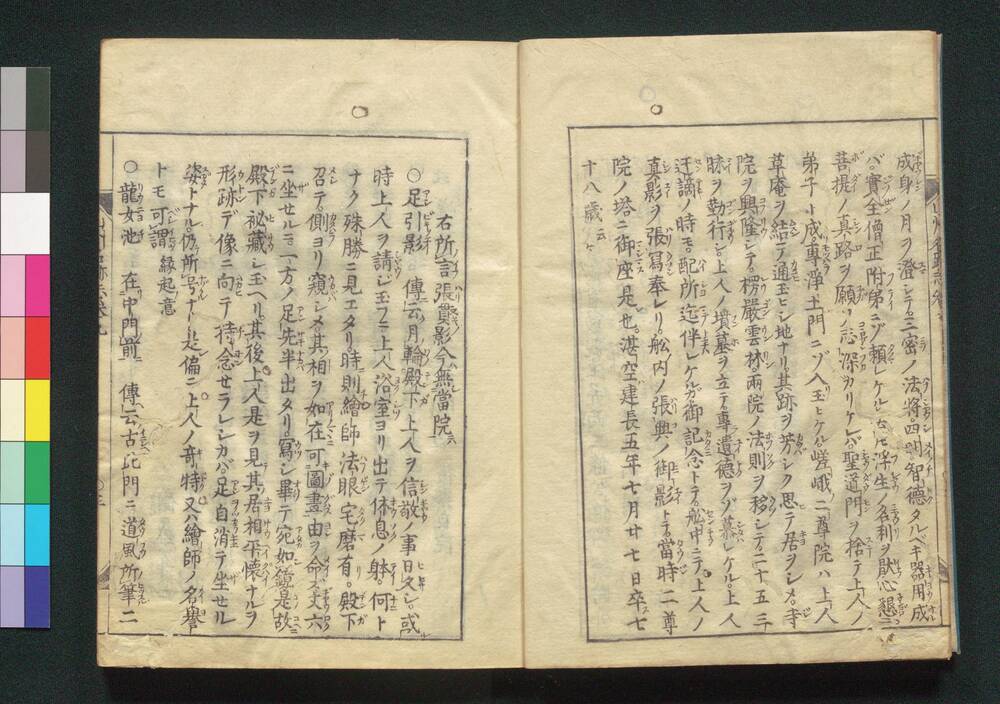 成身ノ月ヲ澄シテ三密ノ法將四明智德タルベキ器用成
バ實全僧正附弟ニゾ賴レケル 浮生ノ名利ヲ猒心懇ニ
菩提ノ真路ヲ願ノ志深カリケレバ聖道門ヲ捨テ上人ノ
弟子ト成專淨土門ニゾ入玉ヒケル嵯峨ノ二尊院ハ上人
草庵ヲ結テ通玉ヒシ地ナリ其跡ヲ芳シク思テ居ヲシメ寺
院ヲ興隆シテ楞嚴雲林兩院ノ法則ヲ移シテ二十五三
昧ヲ勤行シ上人ノ墳墓ヲ立テ專遺德ヲゾ慕レケル上人
迁謫ノ時モ配所迄伴レケルガ御記念トテ舩中ニテ上人ノ
真影ヲ張寫奉レリ舩内ノ張輿ノ御影トテ當時二尊
院ノ塔ニ御座是也湛空建長五年七月廿七日卒ス七
十八歳ト云
右所言張貫影今ハ無當院ニ
○足引影 傳云月輪殿下上人ヲ信敬ノ事日久シ或
時上人ヲ請ジ玉フニ上人浴室ヨリ出テ休息ノ躰何ト
ナク殊勝ニ見エタリ時則繪師法眼宅磨有殿下
召テ側ヨリ窺シメ其相ヲ如在可圖畫由ヲ命ズ丈六
ニ坐セルニ一方ノ足先半出タリ寫シ畢テ宛如鏡是故
殿下祕藏シ玉ヘリ其後上人是ヲ見其居相平懷ナルヲ
形跡デ像ニ向テ待念セラレシカバ足自消テ坐セル
姿トナレリ仍所号ナリ是偏ニ上人ノ奇特又ハ繪師ノ名譽
トモ可謂縁起意
○龍女池 在中門前 傳云古此門ニ道風所筆ニ